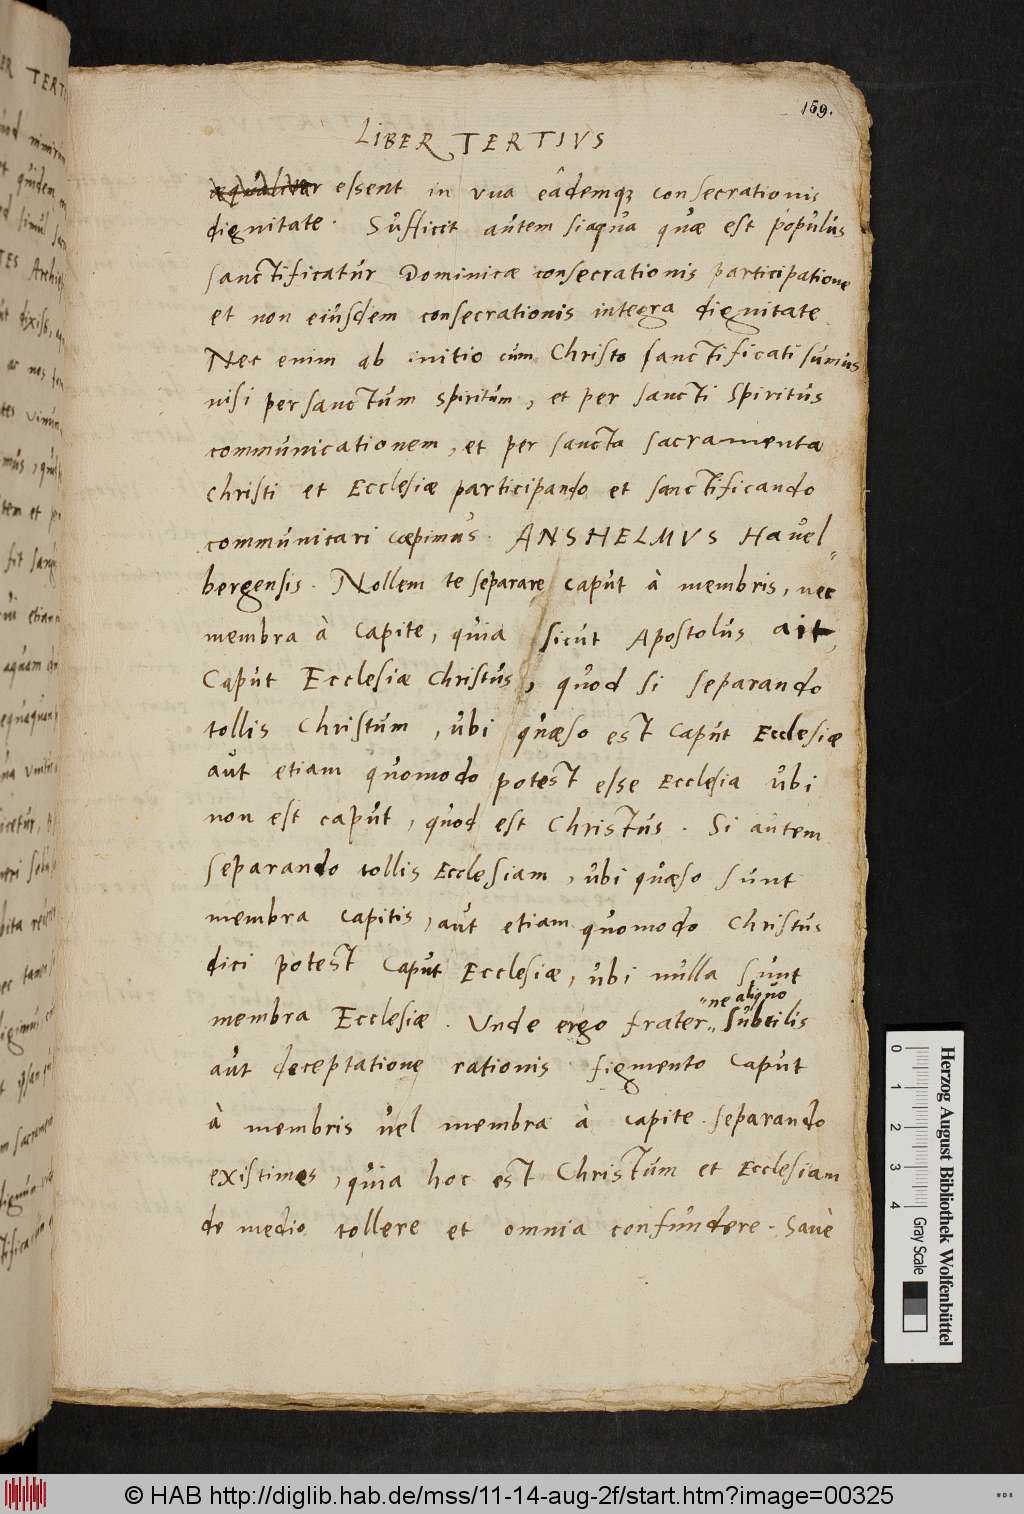 159.
LIBER TERTIVS
æqualiter essent in vna eâdemq3 consecrationis
dignitate. Sufficit autem si aqua quæ est populus
sanctificatur Dominicæ consecrationis participatione
et non eiusdem consecrationis integra dignitate
Nec enim ab initio cum Christo sanctificati sumus
nisi per sanctum spiritum, et per sancti spiritus
communicationem, et per sancta sacramenta
Christi et Ecclesiæ participando et sanctificando
communicari cœpimus. ANSHELMVS Hauel„
bergensis. Nollem te separare caput à membris, nec
membra à capite, quia sicut Apostolus ait,
Caput Ecclesiæ Christus, quod si separando
tollis Christum, ubi quæso est caput Ecclesiæ
aut etiam quomodo potest esse Ecclesia ubi
non est caput, quod est Christus. Si autem
separando tollis Ecclesiam, ubi quæso sunt
membra capitis, aut etiam quomodo Christus
dici potest caput Ecclesiæ, ubi nulla sunt
„ne aliquo
membra Ecclesiæ. Vnde ergo frater„ subtilis
aut deceptatione rationis figmento caput
à membris uel membra à capite separando
existimes, quia hoc est Christum et Ecclesiam
de medio tollere et omnia confundere. Sanè
ER TERTI
Herzog August Bibliothek Wolfenbüttel
Gray Scale
0 1 2 3 4
© HAB http://diglib.hab.de/mss/11-14-aug-2f/start.htm?image=00325
WDB